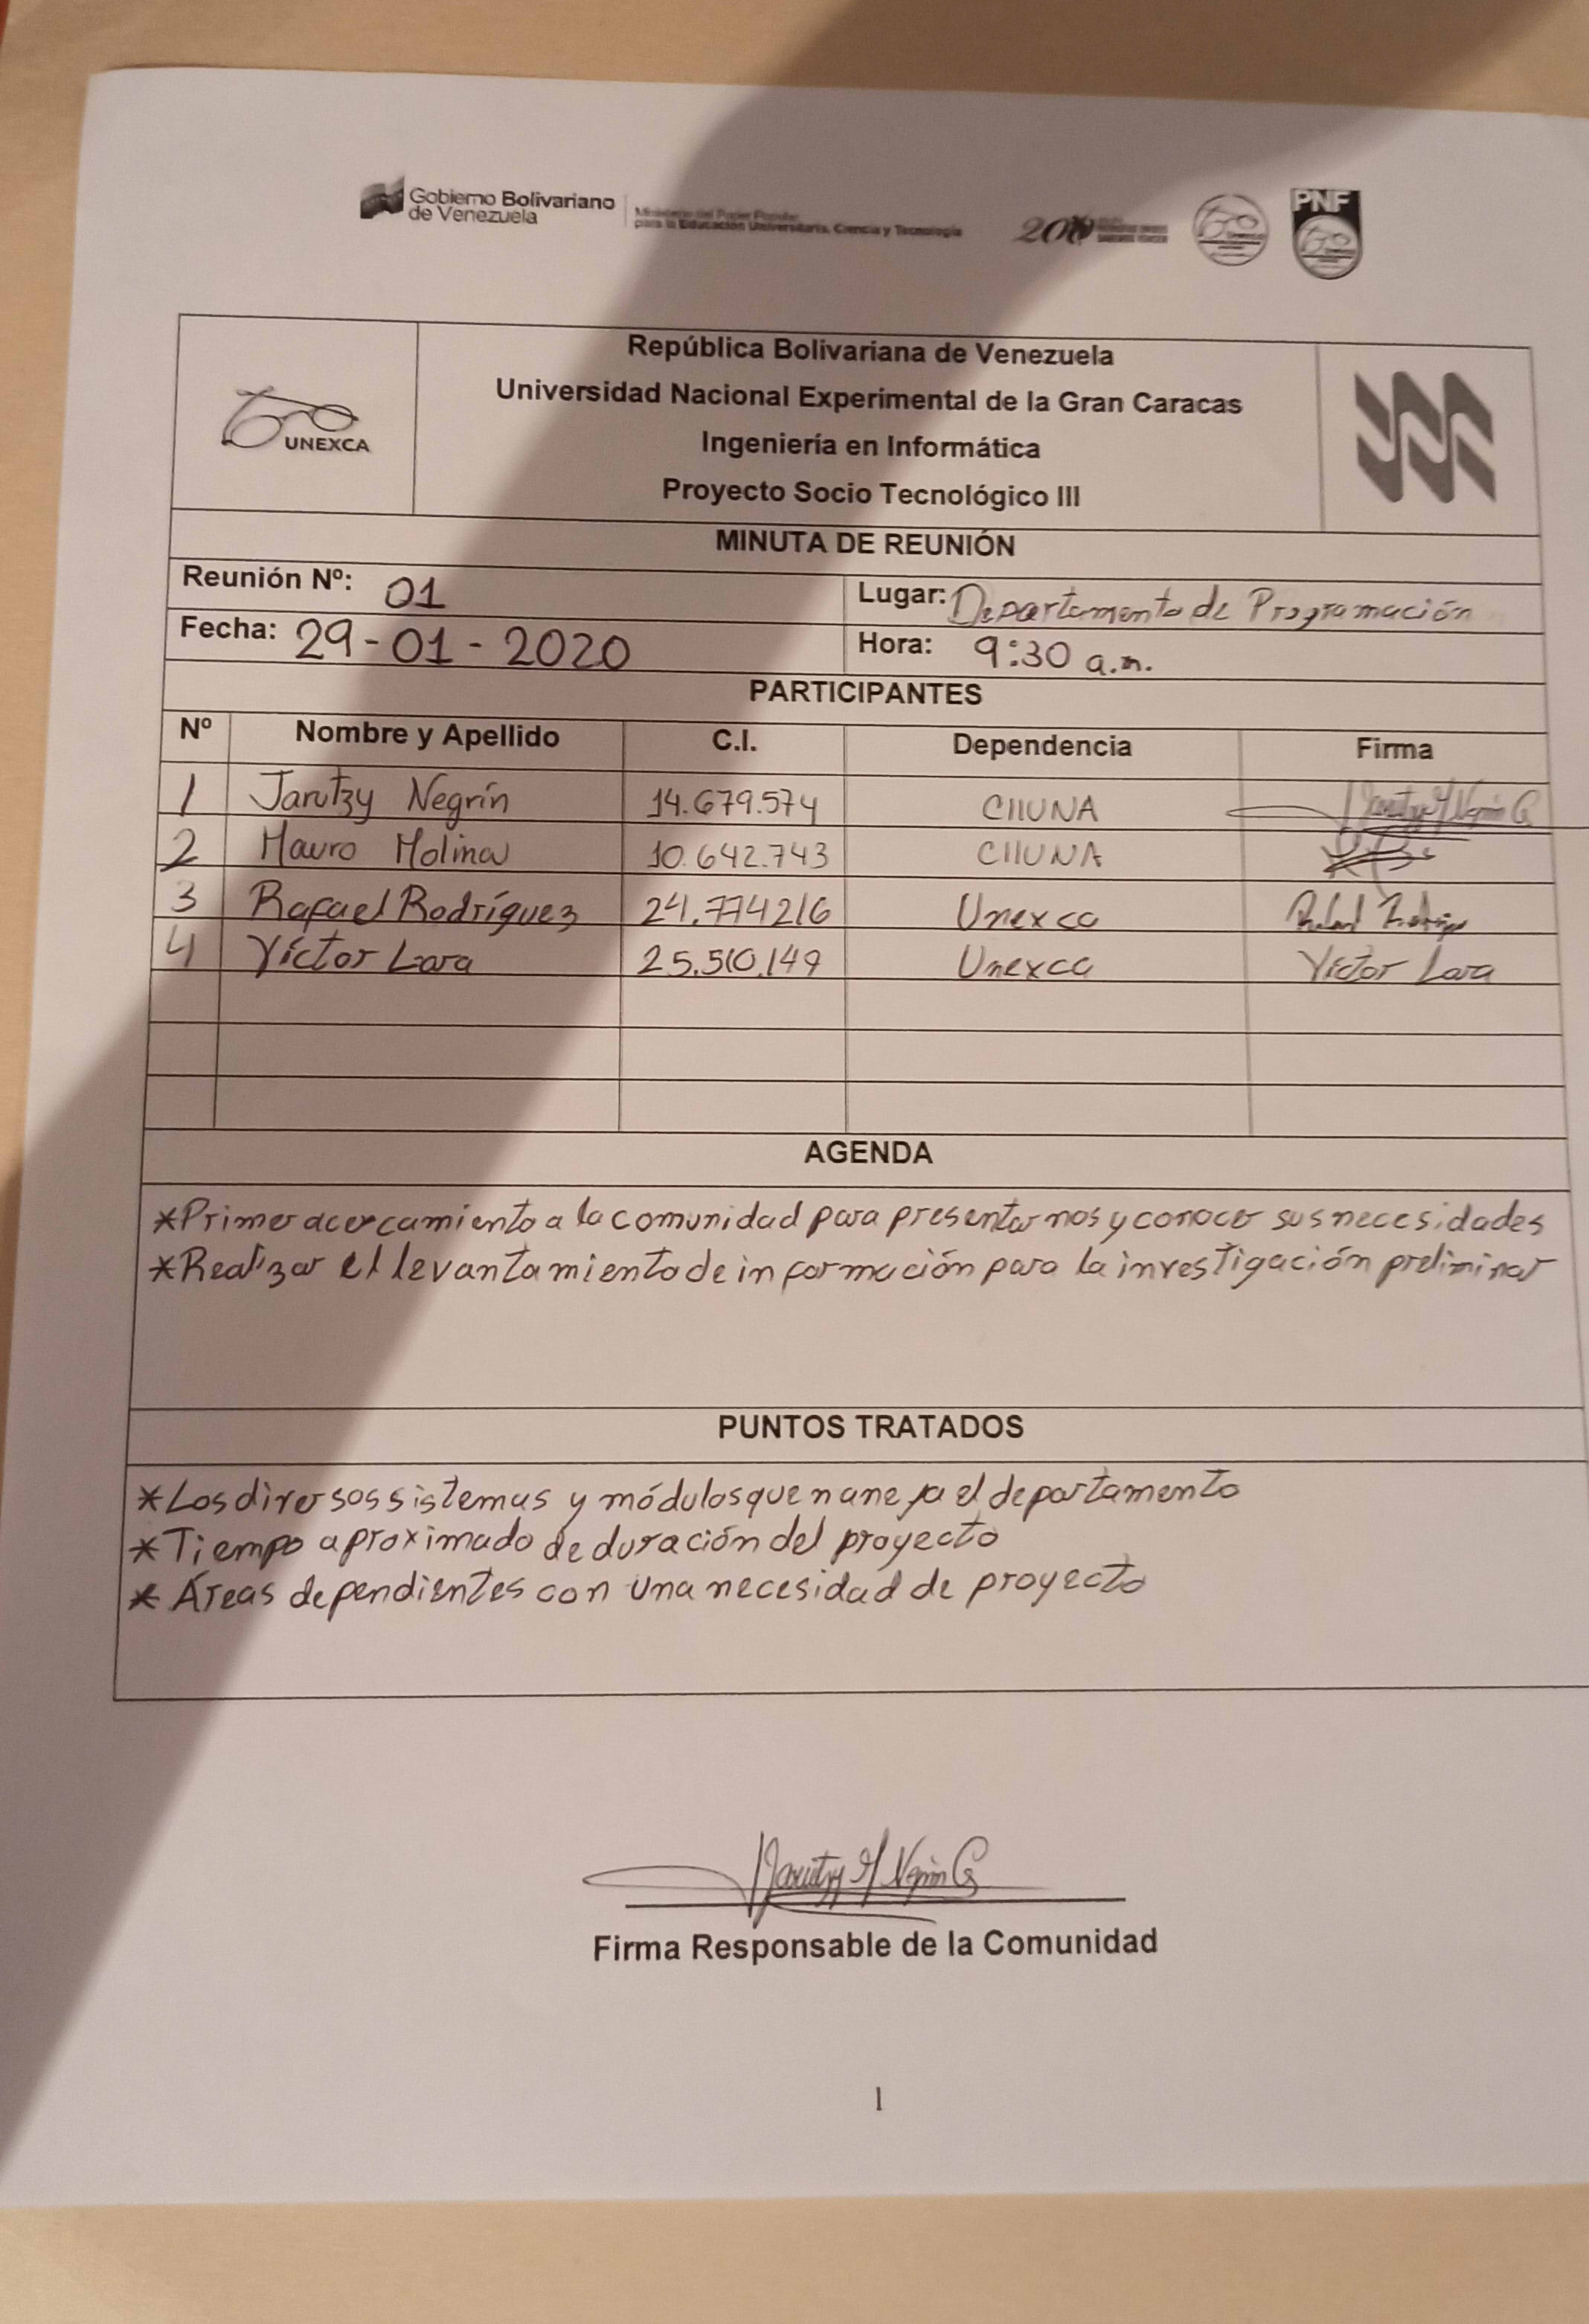 Gobierno Bolivariano
de Venezuela
Ministerio del Poder Popular
para la Educación Universitaria, Ciencia y Tecnología
200
PNF
República Bolivariana de Venezuela
Universidad Nacional Experimental de la Gran Caracas
Ingeniería en Informática
Proyecto Socio Tecnológico III
UNEXCA
MINUTA DE REUNIÓN
Reunión Nº: 01 Lugar: Departamento de Programación
Fecha: 29-01-2020 Hora: 9:30 a.m.
PARTICIPANTES
Nº Nombre y Apellido C.I. Dependencia Firma
1 Jarutzy Negrín 14.679.574 CIIUNA Jarutzy M Negrin G
2 Mauro Molina 10.642.743 CIIUNA
3 Rafael Rodríguez 24.774216 Unexca Rafael Rodrigz
4 Víctor Lara 25.510.149 Unexca Víctor Lara
AGENDA
*Primer acercamiento a la comunidad para presentarnos y conocer sus necesidades
*Realizar el levantamiento de información para la investigación preliminar
PUNTOS TRATADOS
*Los diversos sistemas y módulos que maneja el departamento
*Tiempo aproximado de duración del proyecto
* Áreas dependientes con una necesidad de proyecto
Jarutzy M Negrin G
Firma Responsable de la Comunidad
1